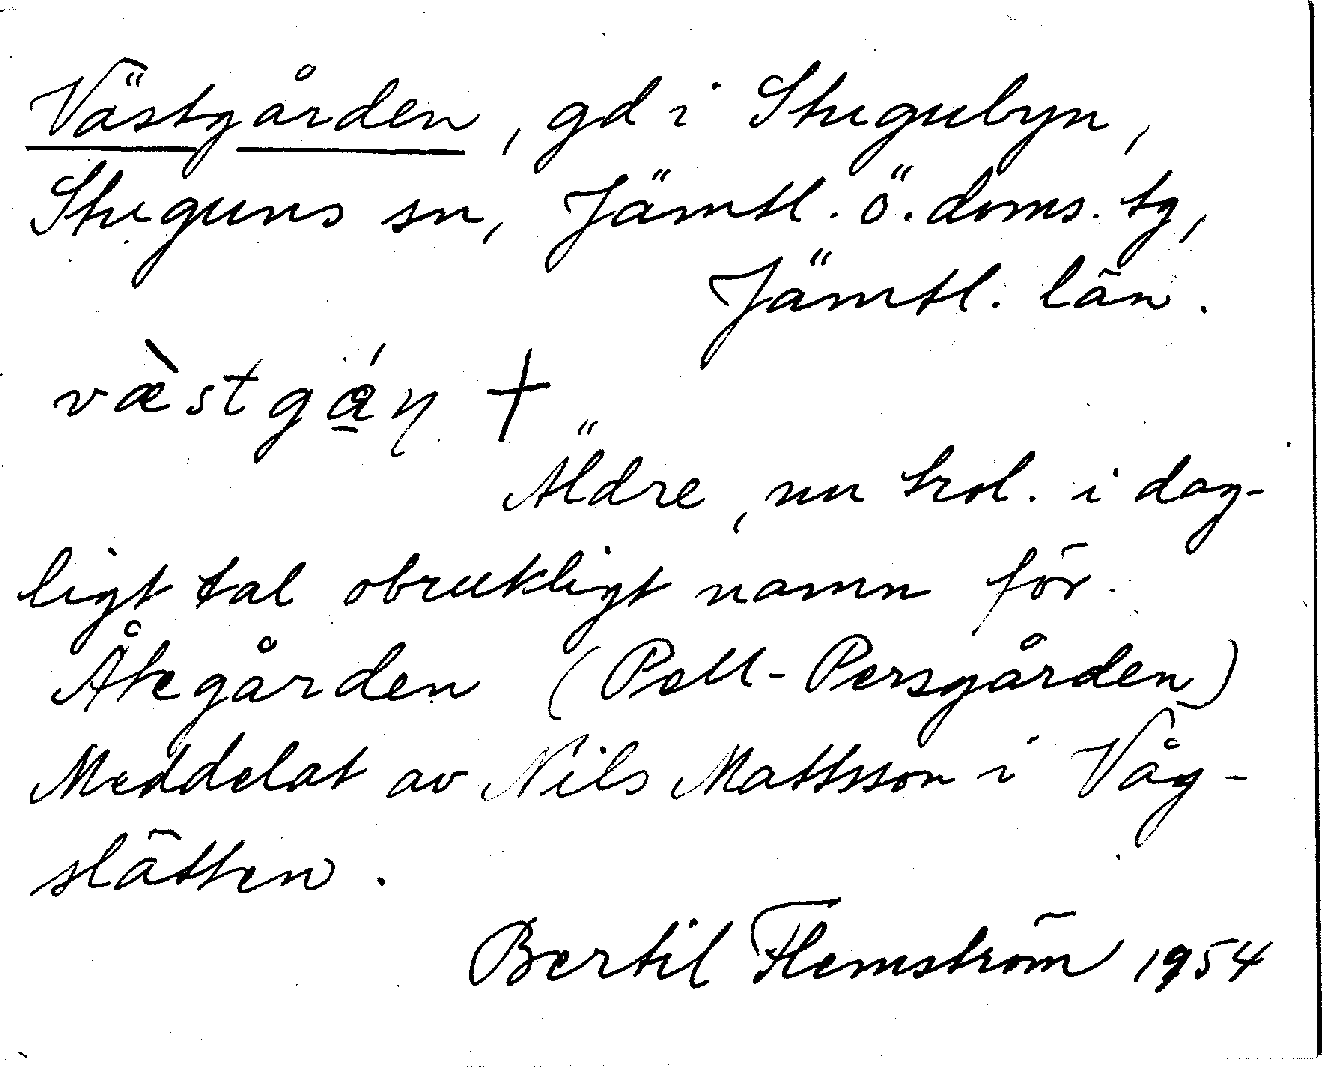 Västgården, gd i Stugubyn,
Stuguns sn, Jämtl. ö. doms. tg,
Jämtl. län.
væ̀stgǻn †
Äldre, nu trol. i dag-
ligt tal obrukligt namn för
Åkegården (Pell-Persgården)
Meddelat av Nils Mattsson i Våg-
slätten.
Bertil Flemström 1954